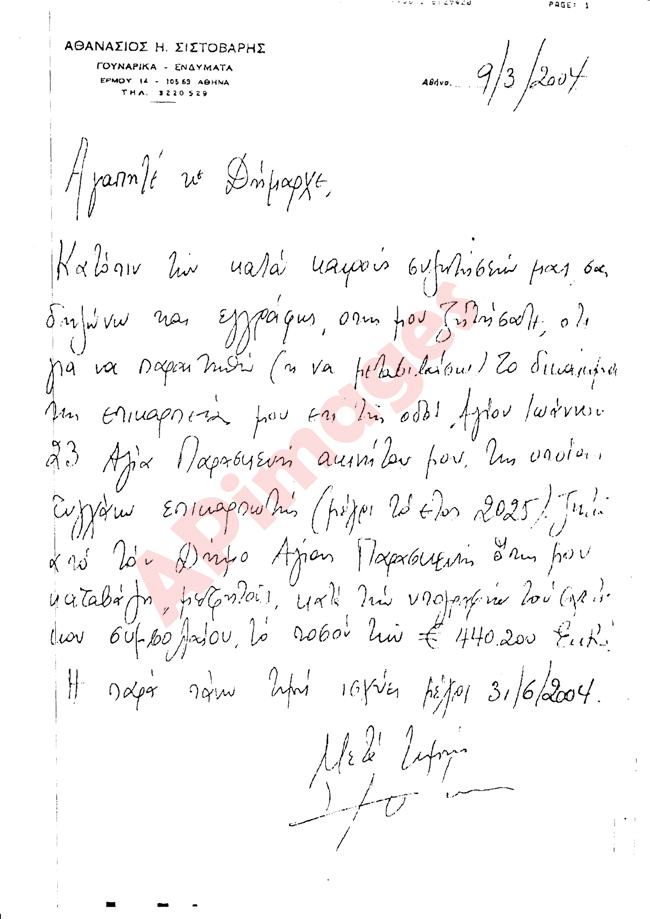 PAGE: 1
ΑΘΑΝΑΣΙΟΣ Η. ΣΙΣΤΟΒΑΡΗΣ
ΓΟΥΝΑΡΙΚΑ - ΕΝΔΥΜΑΤΑ
ΕΡΜΟΥ 14 - 105 63 ΑΘΗΝΑ
ΤΗΛ. 3220529
Αθήνα 9/3/2004
Αγαπητέ κε Δήμαρχε,
Κατόπιν των κατά καιρούς συζητήσεών μας σας
δηλώνω και εγγράφως, όπως μου ζητήσατε, ότι
για να παραιτηθώ (ή να μεταβιβάσω) το δικαίωμα
της επικαρπίας μου επί της οδού Αγίου Ιωάννου
23 Αγία Παρασκευή ακινήτου μου, της οποίας
τυγχάνω επικαρπωτής (μέχρι το έτος 2025) ζητώ
από τον Δήμο Αγίας Παρασκευής όπως μου
καταβάλη, μετρητοίς, κατά την υπογραφήν του
συμβολαίου, το ποσόν των € 440.200 Ευρώ
Η παρά πάνω τιμή ισχύει μέχρι 31/6/2004.
Μετά τιμής
APimages